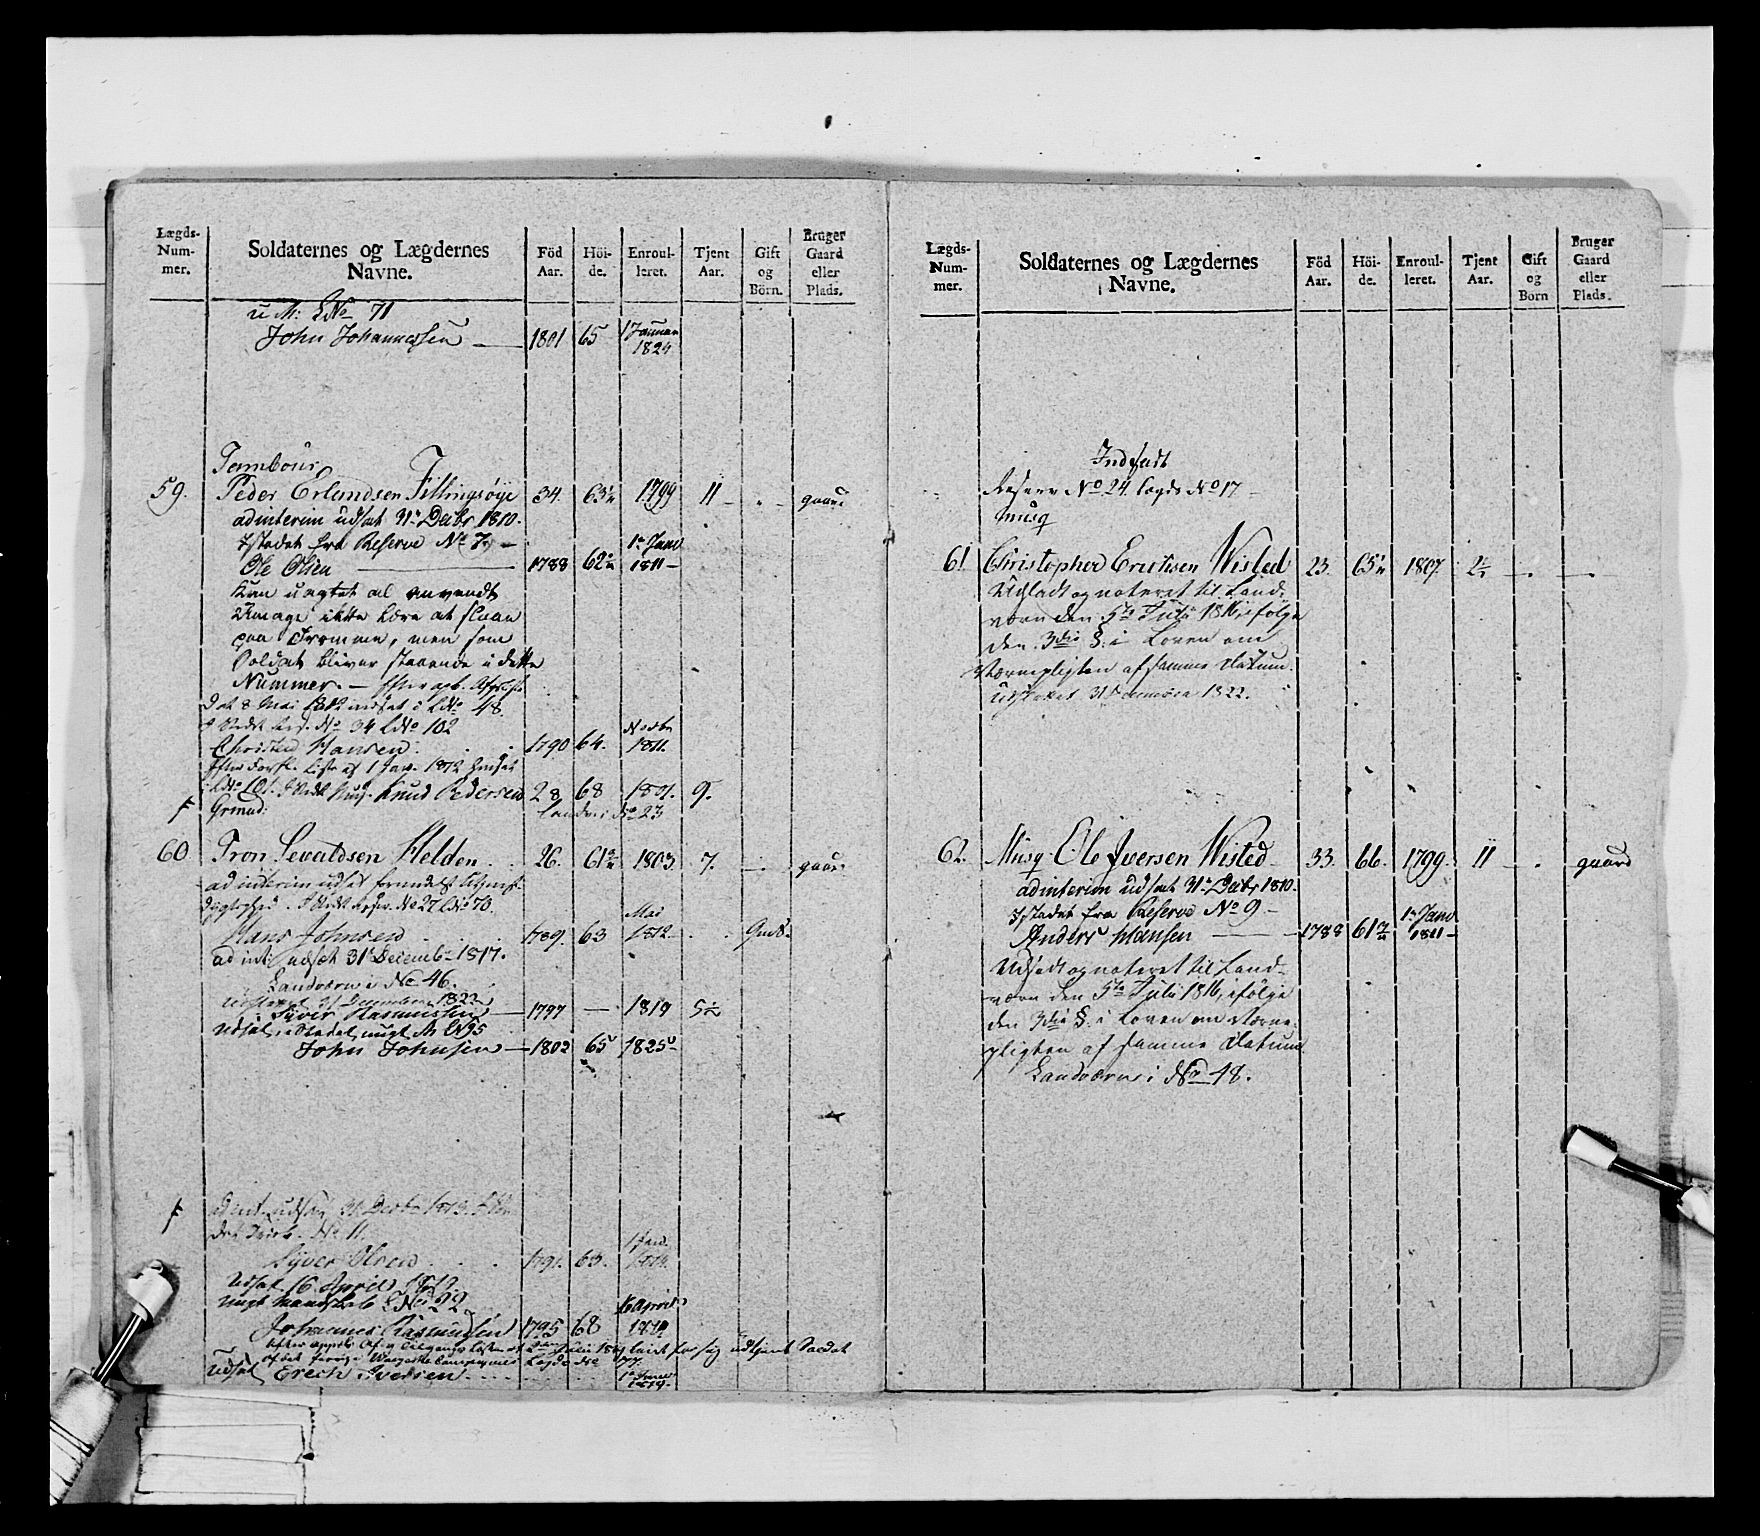 Lægds-Num-mer. Soldaternes og Lægdernes Navne. Föd Aar. Höi-de. Enroul-leret. Tjent Aar. Gift og Börn. Bruger Gaard eller Plads.
u M: LNo 71
John Johannessen 1801 65 1 Januar 1824
Tambour
59. Peder Erlandsen Fillingsøye 34. 63 1799 11 gaard
adinterim udsat 31 Decbr 1810.
Istedet fra Reserve No 7
Ole Olsen 1788 62 1 Janv 1811
Kan uagtet al anvendt
Umage ikke lære at slaae
paa Tromme, men som
Soldat bliver staaende i dette
Nummer. — Efter
8 Mai 1812 indsat i LNo 48.
No 34 LNo 102
Christen Hansen 1790 64. 1811.
Efter Liste af 1 Jan. 1812
LNo 101. Knud Pedersen 28 68 1801. 9.
No 23
60 Tron Sevaldsen Helden 26. 61 1803 7. gaard
ad interim udsat
No 27 LNo 70.
Hans Johnsen 1789. 63 Mai 1812.
ad int: udsat 31 Decemb 1817.
Landværn i No 46.
31 December 1822
Syver Rasmussen 1797 — 1819 5½
Udsat, i Stedet ungt M LN 95
John Johnsen 1802 65 1825
ad int. udsat 31 Decbr 1813.
No 11.
Syver Olsen 1791. 63. 1 Jan. 1814.
Udsat 16 April 1819
ungt Mandskab LNo 22
Johannes Rasmussen 1795 68 16 April 1819
Udsat Erech Iversen 1 Janv 1819.
Lægds-Num-mer. Soldaternes og Lægdernes Navne. Föd Aar. Höi-de. Enroul-leret. Tjent Aar. Gift og Born Bruger Gaard eller Plads.
Indsadt
Reserv No 24. Legds No 17
Musq
61 Christopher Erichsen Wisted 23. 65 1807. 2½
Udsadt og noteret til Land-
værn den 5te Julii 1816, ifølge
den 3die §. i Loven om
Værnepligten af samme Datum.
31 December 1822.
62. Musq Ole Iversen Wisted 33. 66. 1799. 11 gaard
adinterim udsat 31 Decbr 1810.
Istedet fra Reserve No 9
Anders Hansen 1788 61½ 1 Janv 1811
Udsadt og noteret til Land-
værn den 5te Julii 1816, ifølge
den 3die §. i Loven om Værne-
pligten af samme Datum.
Landværn i No 48.